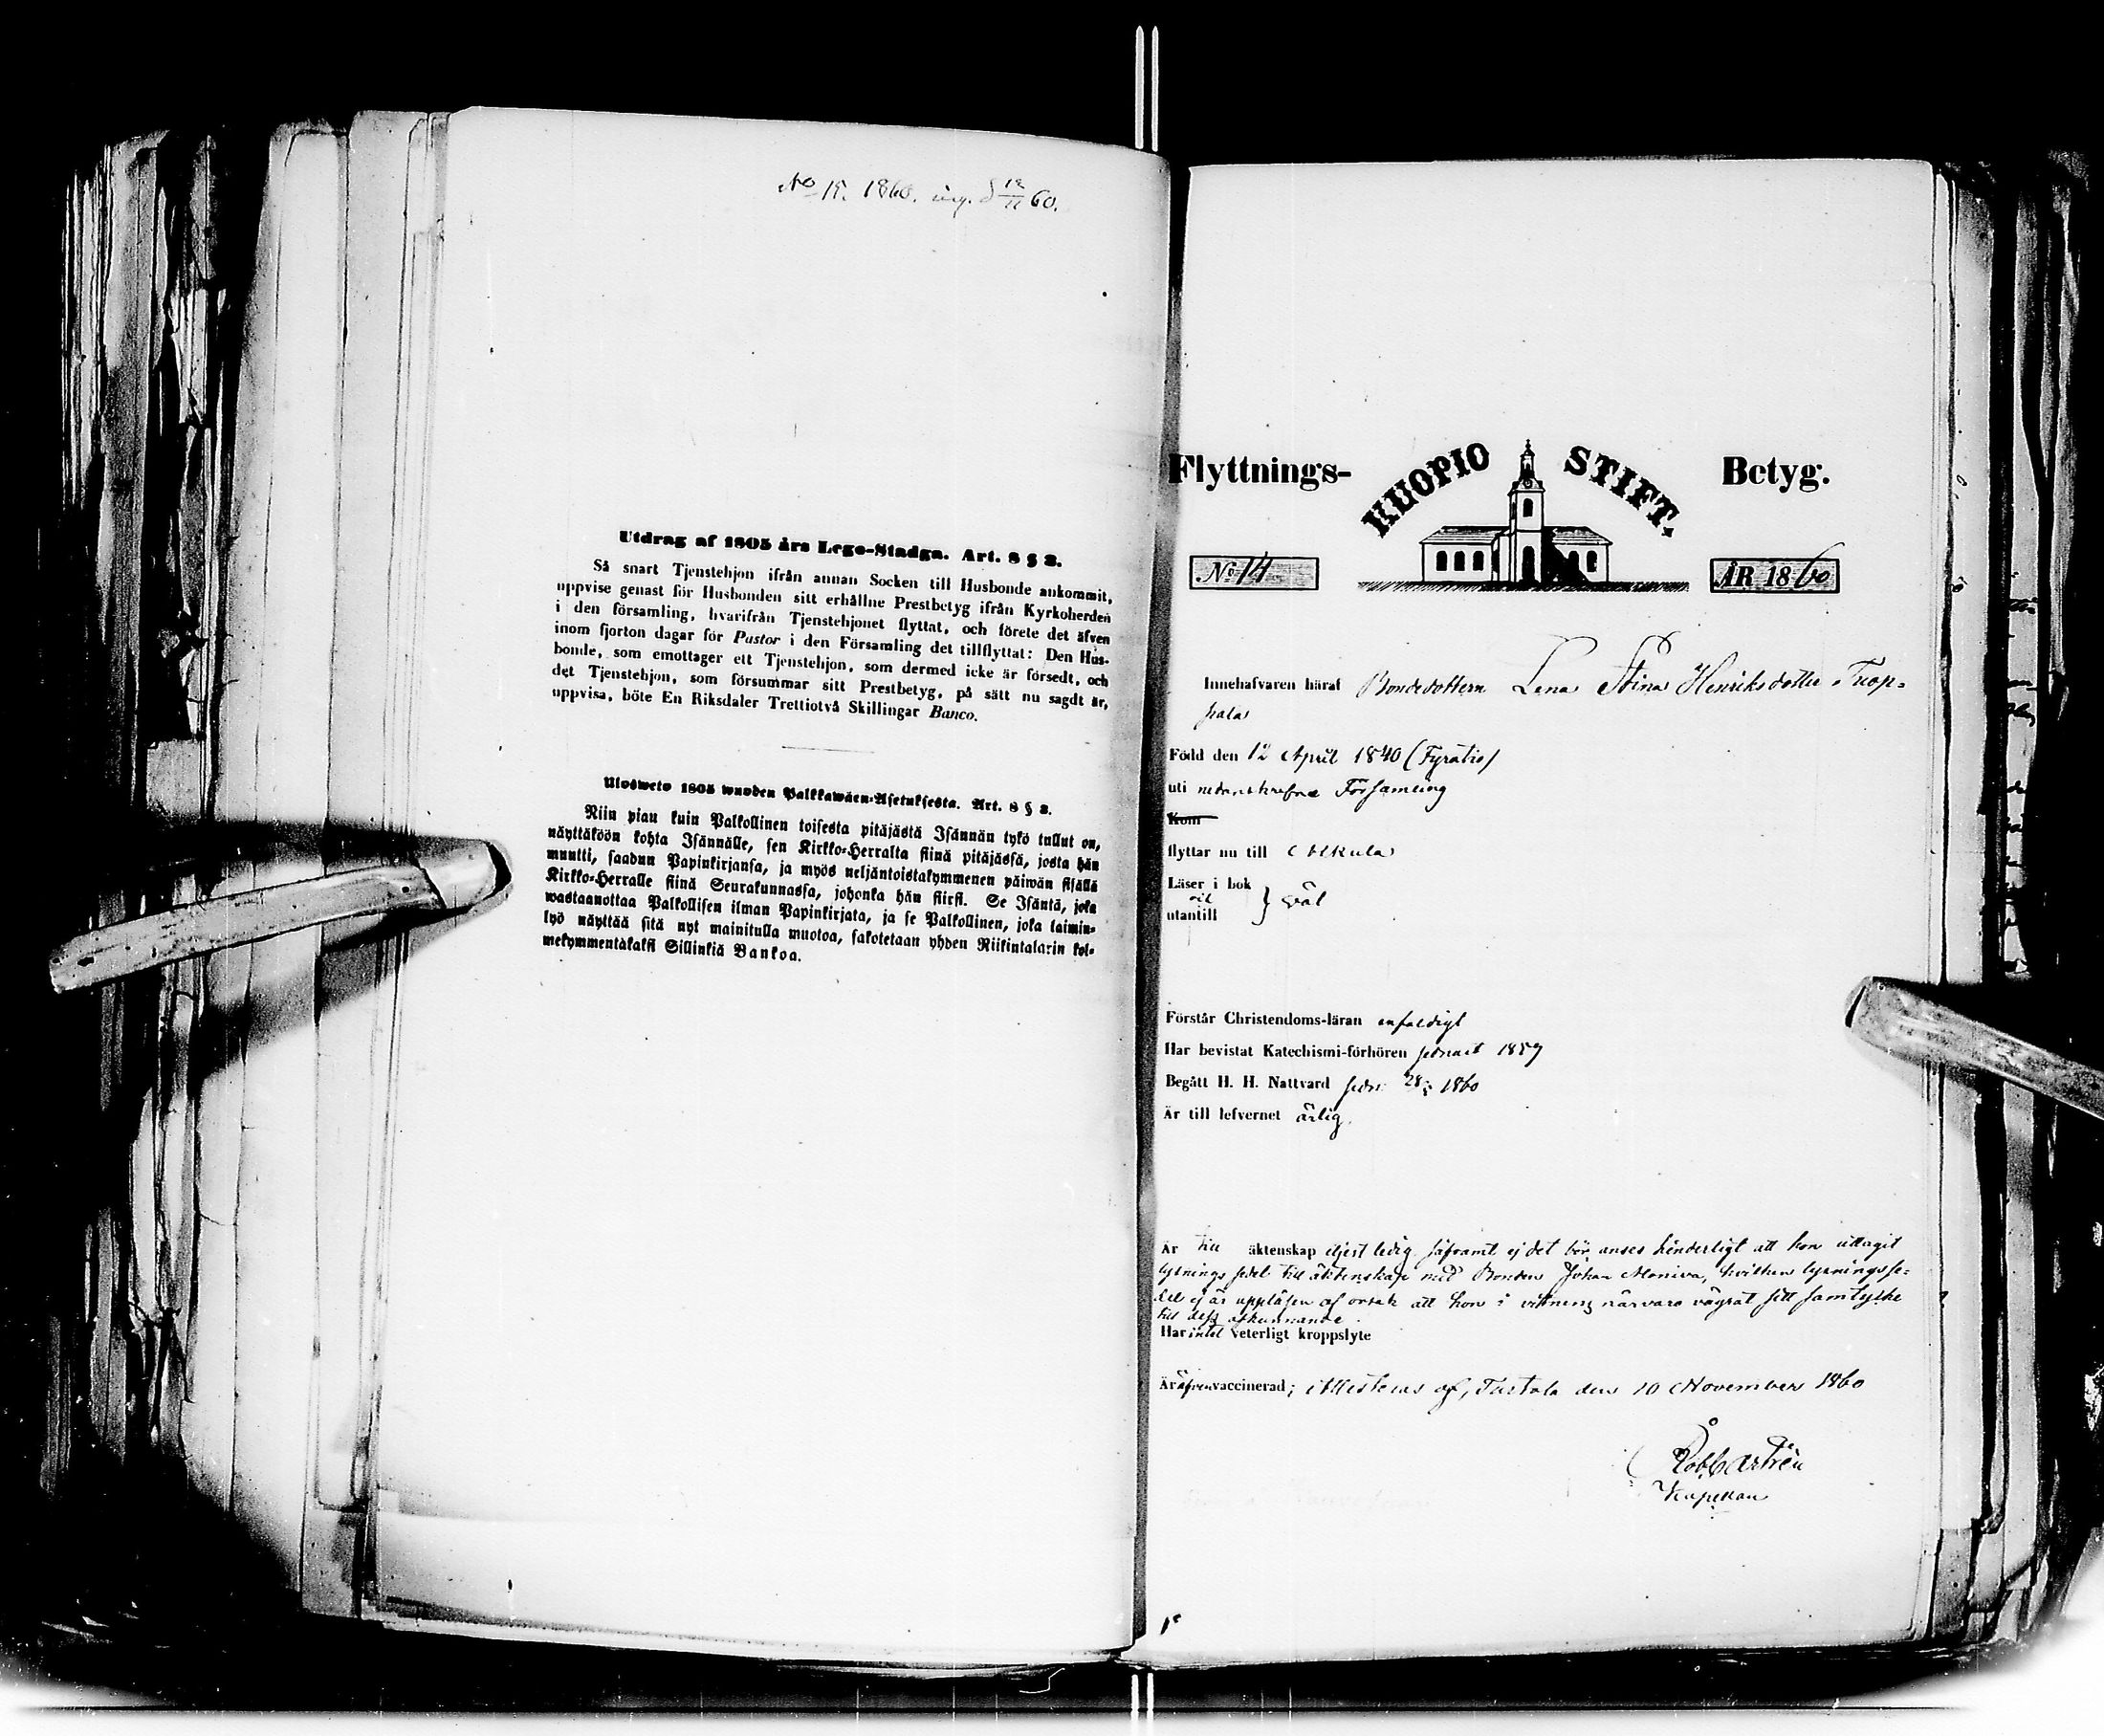 No 15. 1860. ing. d 12/11 60.
Utdrag af 1805 års Lego-Stadga. Art. 8 § 3.
Så snart Tjenstehjon ifrån annan Socken till Husbonde ankommit,
uppvise genast för Husbonden sitt erhållne Prestbetyg ifrån Kyrkoherden
i den församling, hvarifrån Tjenstehjonet flyttat, och förete det äfven
inom fjorton dagar för Pastor i den Församling det tillflyttat: Den Hus-
bonde, som emottager ett Tjenstehjon, som dermed icke är försedt, och
det Tjenstehjon, som försummar sitt Prestbetyg, på sätt nu sagdt är,
uppvisa, böte En Riksdaler Trettiotvå Skillingar Banco.
Ulosweto 1805 wuoden Palkkawäen-Asetuksesta. Art. 8 § 3.
Niin pian kuin Palkollinen toisesta pitäjästä Isännän tykö tullut on,
näyttäköön kohta Isännälle, sen Kirkko-Herralta siinä pitäjässä, josta hän
muutti, saadun Papinkirjansa, ja myös neljäntoistakymmenen päiwän sisällä
Kirkko-Herralle siinä Seurakunnassa, johonka hän siirsi. Se Isäntä, joka
wastaanottaa Palkollisen ilman Papinkirjata, ja se Palkollinen, joka laimin-
lyö näyttää sitä nyt mainitulla muotoa, sakotetaan yhden Riikintalarin kol-
mekymmentäkaksi Sillinkiä Bankoa.
Flyttnings- KUOPIO STIFT. Betyg.
No 14 ÅR 1860
Innehafvaren häraf Bondedottern Lena Stina Henriksdotter Tuop-
pala
Född den 12 April 1840 (Fyratio)
uti nedanskrefne Församling
Kom
flyttar nu till
Läser i bok
utantill } väl
Förstår Christendoms-läran enfaldigt
Har bevistat Katechismi-förhören sednast 1859
Begått H. H. Nattvard sedn. 28/5 1860
Är till lefvernet ärlig.
Är till äktenskap eljest ledig såframt ej det bör anses hinderligt att hon uttagit
lysnings sedel till äktenskap med Bonden Johan Moniva, hvilken lysningsse-
del ej är uppläsen af orsak att hon i vittnens närvaro vägrat sitt samtyske
till dess afkunnande.
Har intet veterligt kroppslyte
Är äfven vaccinerad; Attesteras af, Tustola den 10 November 1860
Kapellan